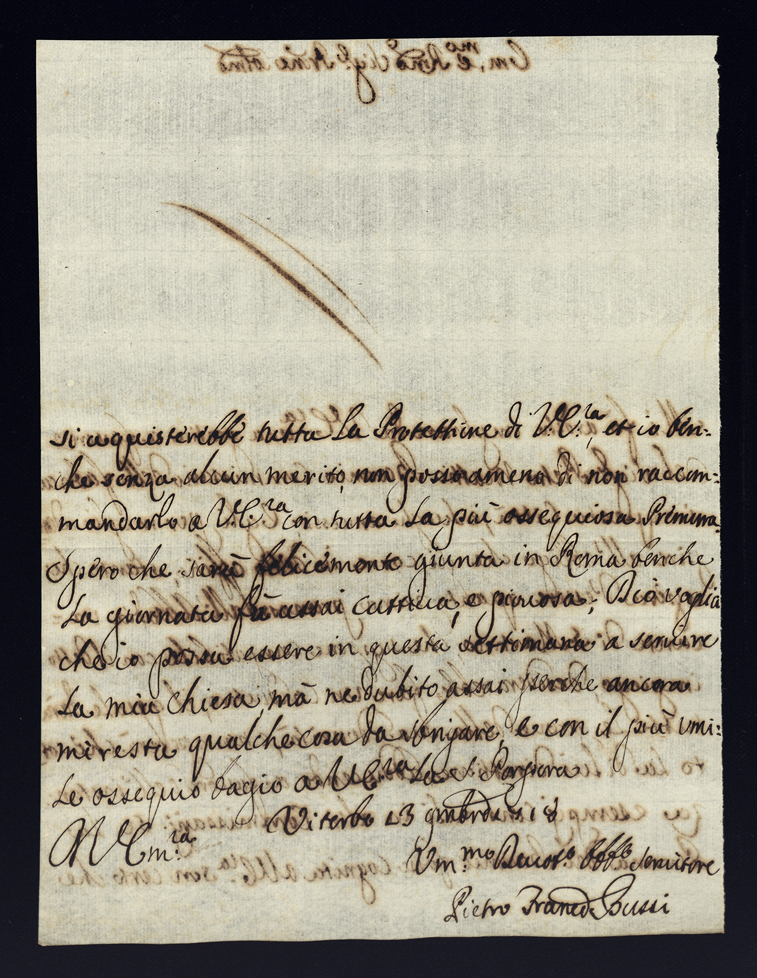 si aquisterebbe tutta la Protettione di V.E.ra, et io ben=
che senza alcun merito, non posso ameno di non raccom=
mandarlo a V.E.ra con tutta la più ossequiosa Premura
Spero che sarà felicemente giunta in Roma benche
La giornata fù assai cattiva, e piovosa; Dio voglia
che io possa essere in questa settimana a servire
La mia chiesa mà ne dubito assai perche ancora
mi resta qualche cosa da purgare, e con il più umi=
le ossequio bagio a V.E.ra la S. Porpora
Viterbo 13
V.Em.ra
Um.mo Devot.o Obb.o Servitore
Pietro Franc. Bussi